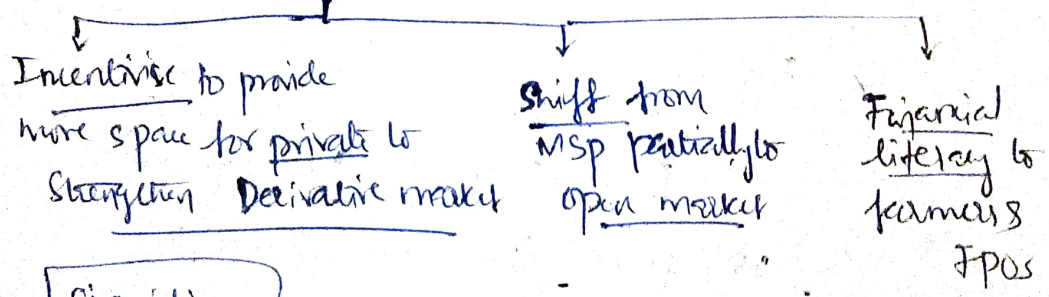 Incentivise to provide
more space for private to
Strengthen Derivative market
Shift from
MSP partially to
open market
Financial
literacy to
farmers &
FPOs